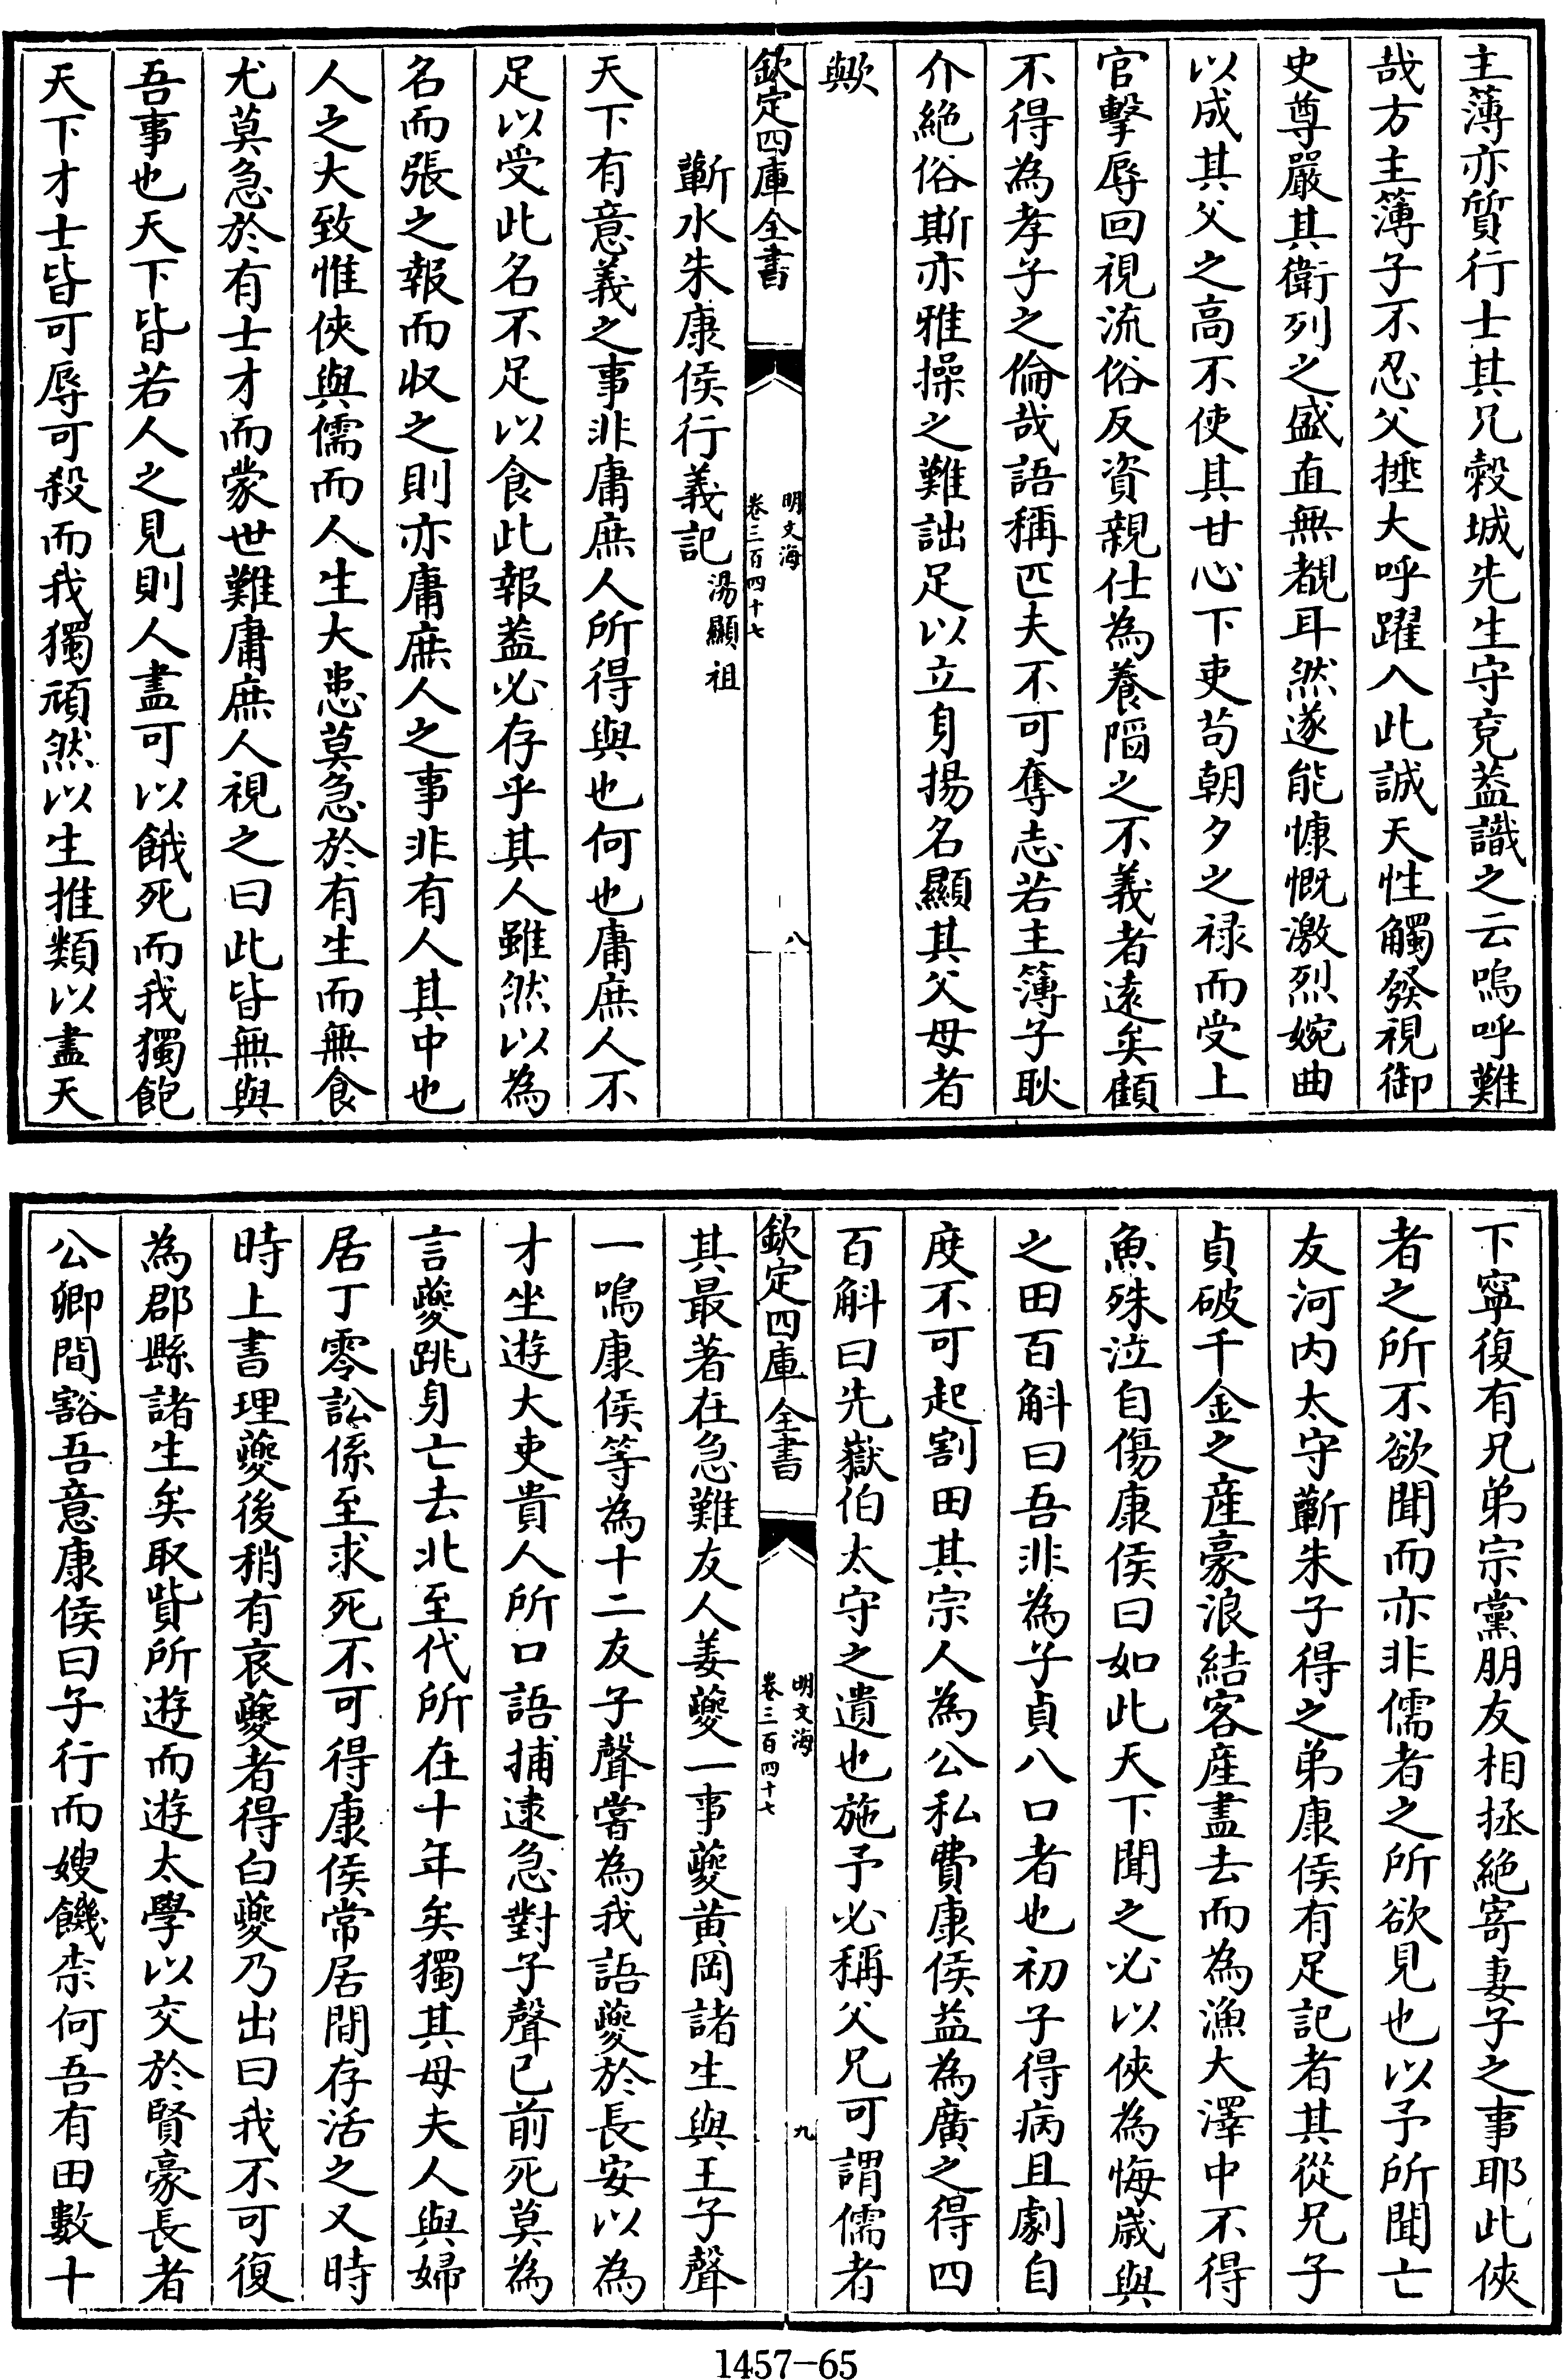 主薄亦質行士其兄榖城先生守兖葢識之云嗚呼難
哉方主簿子不忍父捶大呼躍入此誠天性觸發視御
史尊嚴其衛列之盛直無覩耳然遂能慷慨激烈婉曲
以成其父之高不使其甘心下吏苟朝夕之禄而受上
官擊辱回視流俗反資親仕為養陷之不義者遠矣顧
不得為孝子之倫哉語稱匹夫不可奪志若主簿子耿
介絶俗斯亦雅操之難詘足以立身揚名顯其父母者
歟
欽定四庫全書
明文海
卷三百四十七
八
蘄水朱康侯行義記 湯顯祖
天下有意義之事非庸庶人所得與也何也庸庶人不
足以受此名不足以食此報葢必存乎其人雖然以為
名而張之報而収之則亦庸庶人之事非有人其中也
人之大致惟俠與儒而人生大患莫急於有生而無食
尤莫急於有士才而蒙世難庸庶人視之曰此皆無與
吾事也天下皆若人之見則人盡可以餓死而我獨飽
天下才士皆可辱可殺而我獨頑然以生推類以盡天
下寧復有兄弟宗黨朋友相拯絶寄妻子之事耶此俠
者之所不欲聞而亦非儒者之所欲見也以予所聞亡
友河内太守蘄朱子得之弟康侯有足記者其從兄子
貞破千金之產豪浪結客產盡去而為漁大澤中不得
魚殊泣自傷康侯曰如此天下聞之必以俠為悔嵗與
之田百斛曰吾非為子貞八口者也初子得病且劇自
度不可起割田其宗人為公私費康侯益為廣之得四
百斛曰先嶽伯太守之遺也施予必稱父兄可謂儒者
欽定四庫全書
明文海
卷三百四十七
九
其最著在急難友人姜夔一事夔黄岡諸生與王子聲
一鳴康侯等為十二友子聲嘗為我語夔於長安以為
才坐遊大吏貴人所口語捕逮急對子聲已前死莫為
言夔跳身亡去北至代所在十年矣獨其母夫人與婦
居丁零訟係至求死不可得康侯常居間存活之又時
時上書理夔後稍有哀夔者得白夔乃出曰我不可復
為郡縣諸生矣取貲所遊而遊太學以交於賢豪長者
公卿間豁吾意康侯曰子行而嫂饑柰何吾有田數十
1457-65